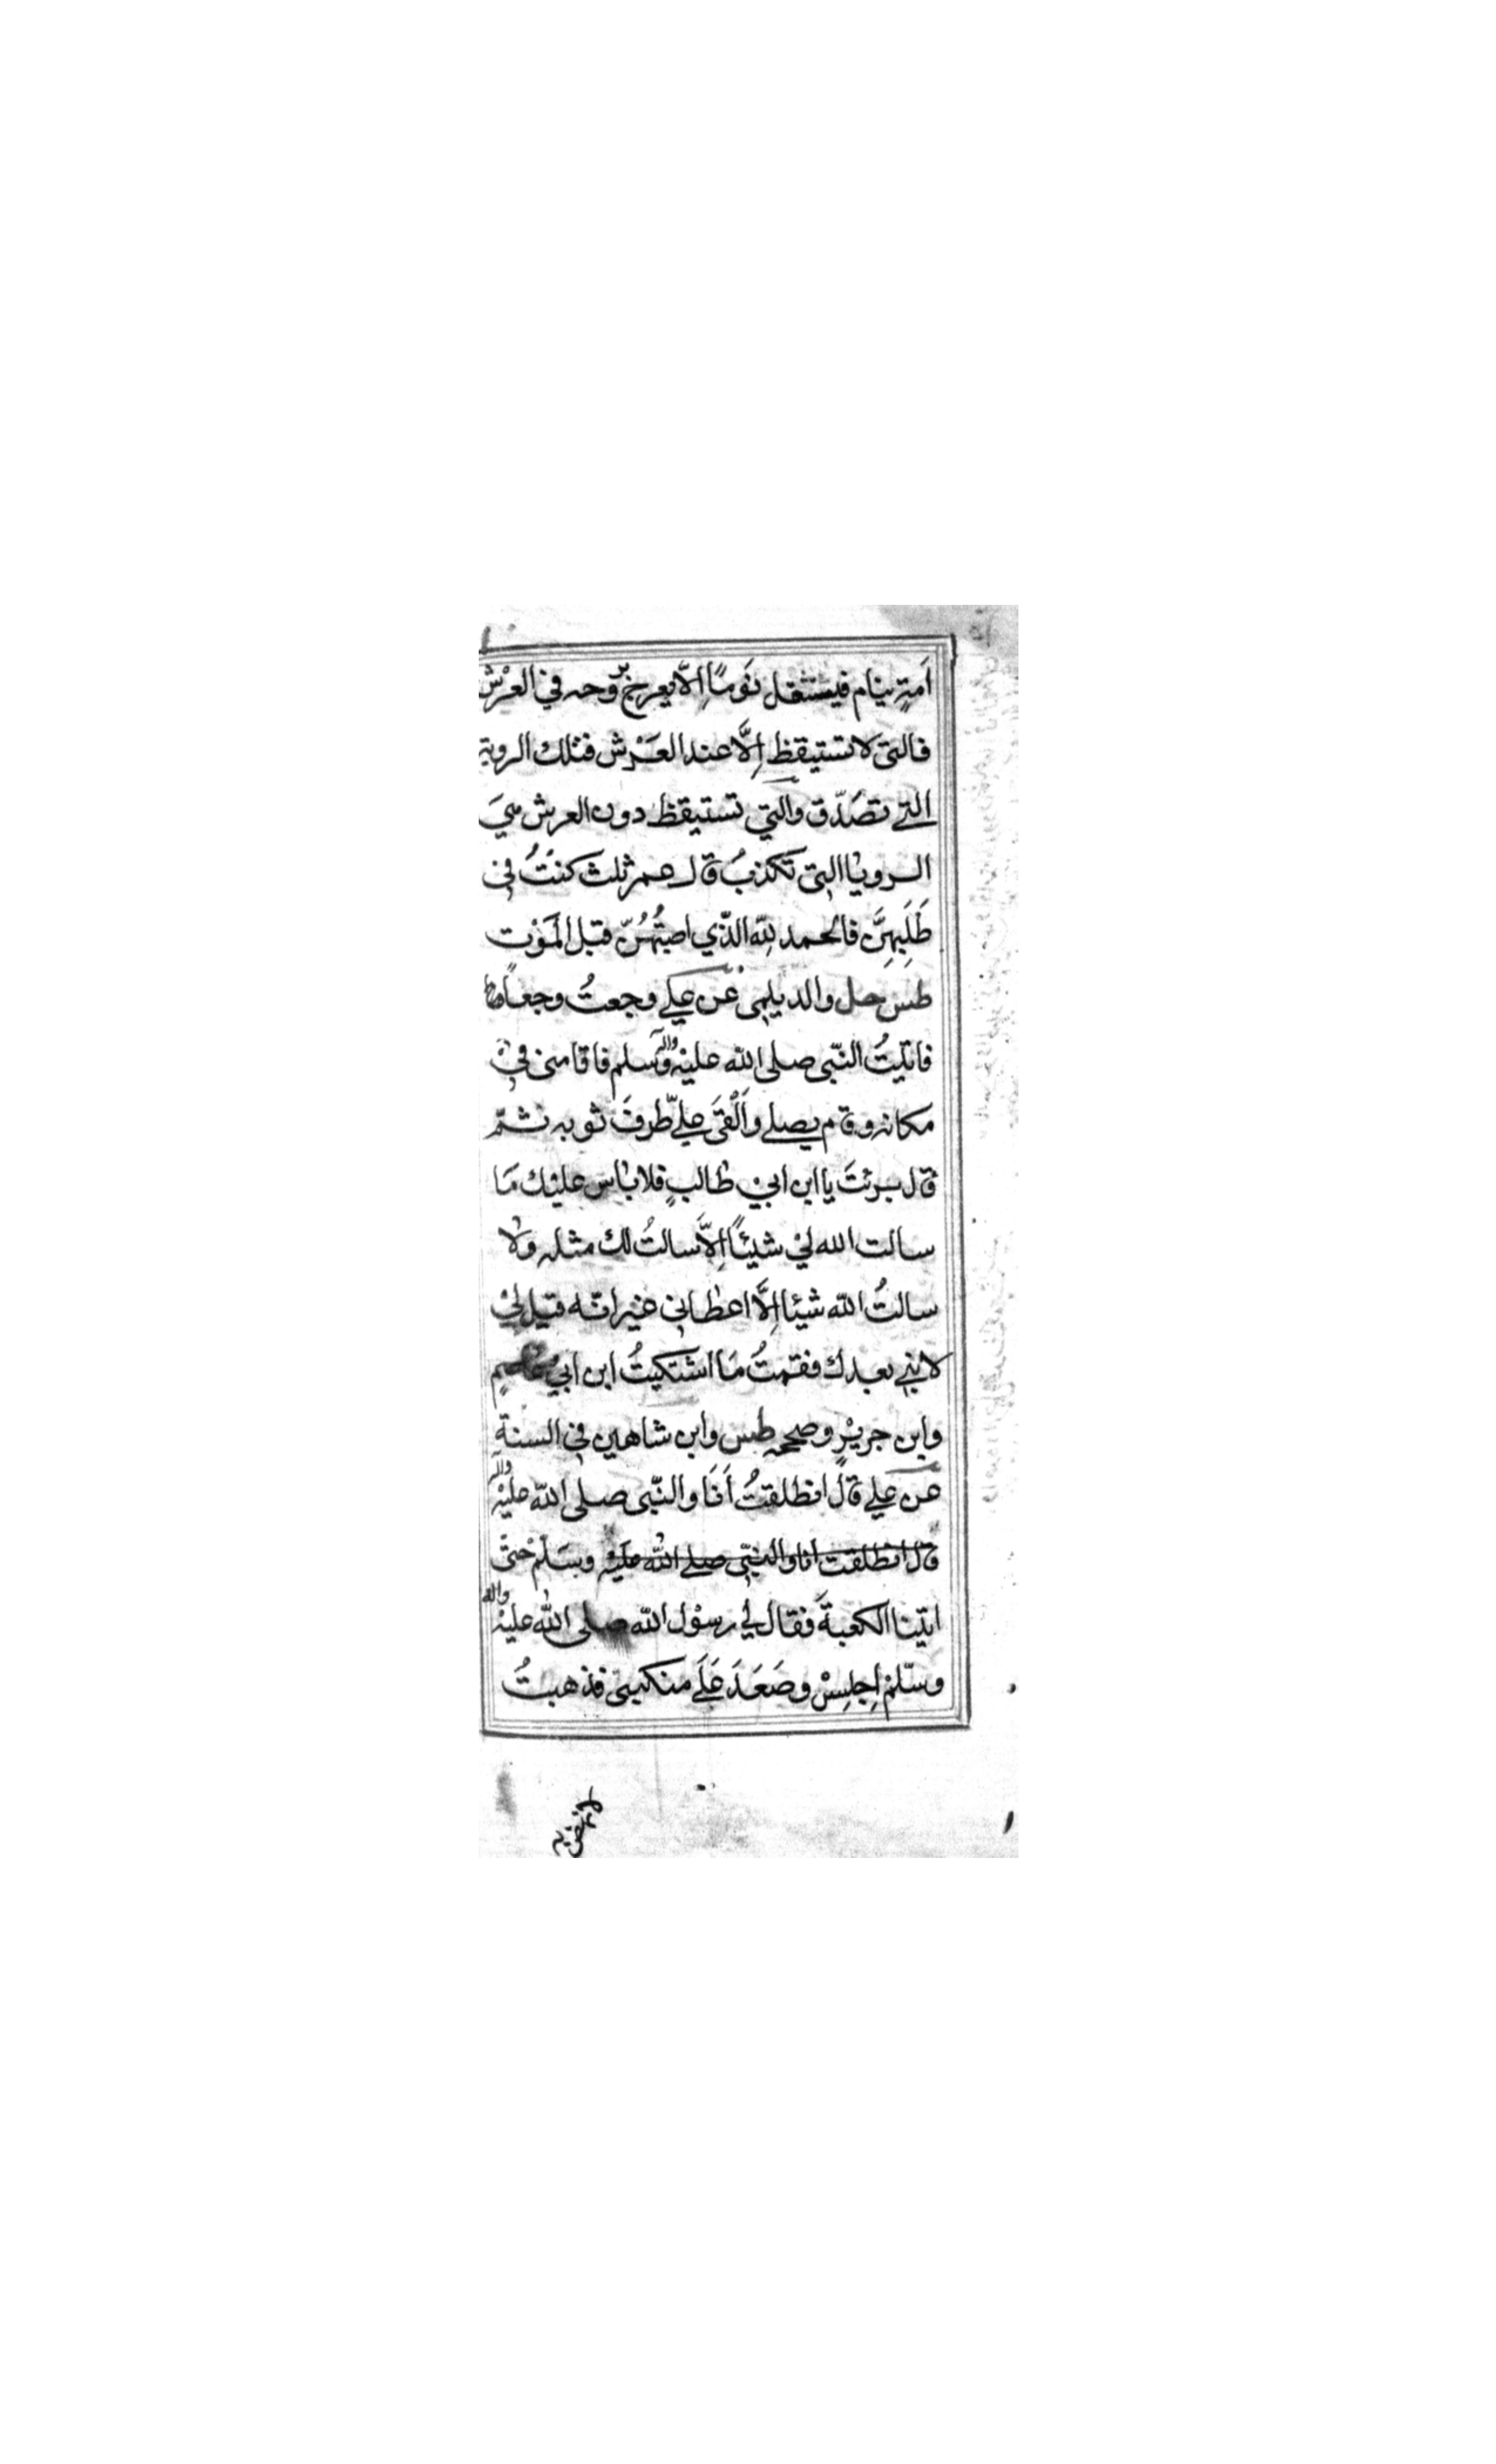 اَمةٍ ينام فيستثقل نَومًا اِلاّ يعرج بروحه في العرْش
فالتى لا تستيقظ اِلَّا عند العَرْش فتلك الروية
التے تصَدّق والتي تستيقظ دون العرش هيَ
الرويا التى تكذبُ قال عمر ثلث كنتُ فى
طَلَبِهِنَّ فالحمد للّه الذّي اصبتُهُنّ قبل المَوْتِ
طس حل والديلمى عَن علے وجعتُ وجعاً
فاتيتُ النّبى صلى الله عليْه واله وسلم فاقامنى في
مكانه وقام يصلے واَلْقَى علےّ طرفَ ثوبه ثمّ
قال برئتَ يا ابن ابي طالبٍ فلا باس عليْك مَا
سالت الله ليْ شيئًا اِلاَّ سالتُ لك مثله ولا
سالتُ اللّه شيئا اِلَّا اعطانى غير انّه قيل ليْ
لا نبے بعدك فقمتُ مَا اشتكيتُ ابن ابيْ عاصمٍ
وابن جريْرٍ وصححه طس وابن شاهين في السنة
عَن علے قال انطلقتُ اَنَا والنّبى صلى اللّه عليْه واله
قال انطلقت انا والنبّى صلے اللّه عليْه وسَلّم حتى
اتيْنا الكعبةَ فقال لي رسوْل اللّه صلى اللّه عليْه واله
وسلّم اِجلِسْ وصَعَدَ عَلَے منكبىّ فذهبتُ
لانهض به